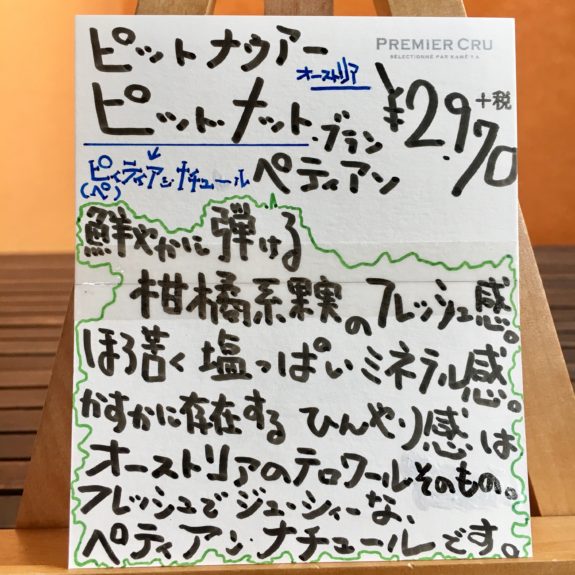 ピットナウアー
PREMIER CRU
SÉLECTIONNÉ PAR KAMEYA
オーストリア
ピットナット・ブラン
¥2.970+税
ピィティアンナチュール
(ペ)
ペティアン
鮮やかに弾ける
柑橘系果実のフレッシュ感。
ほろ苦く塩っぱいミネラル感。
かすかに存在するひんやり感は
オーストリアのテロワールそのもの。
フレッシュでジューシィーな、
ペティアンナチュールです。